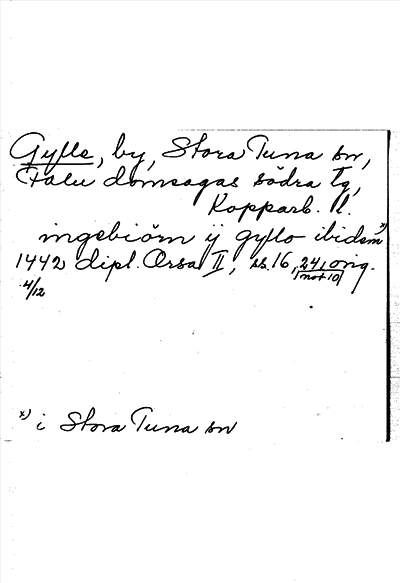 Gylle, by, Stora Tuna sn,
Falu domsagas södra tg,
Kopparb. l.
ingebiörn ij gyllo ibidem x)
1442 dipl. Orsa II, ss. 16, 24, orig.
4/12 not 10
x) i Stora Tuna sn